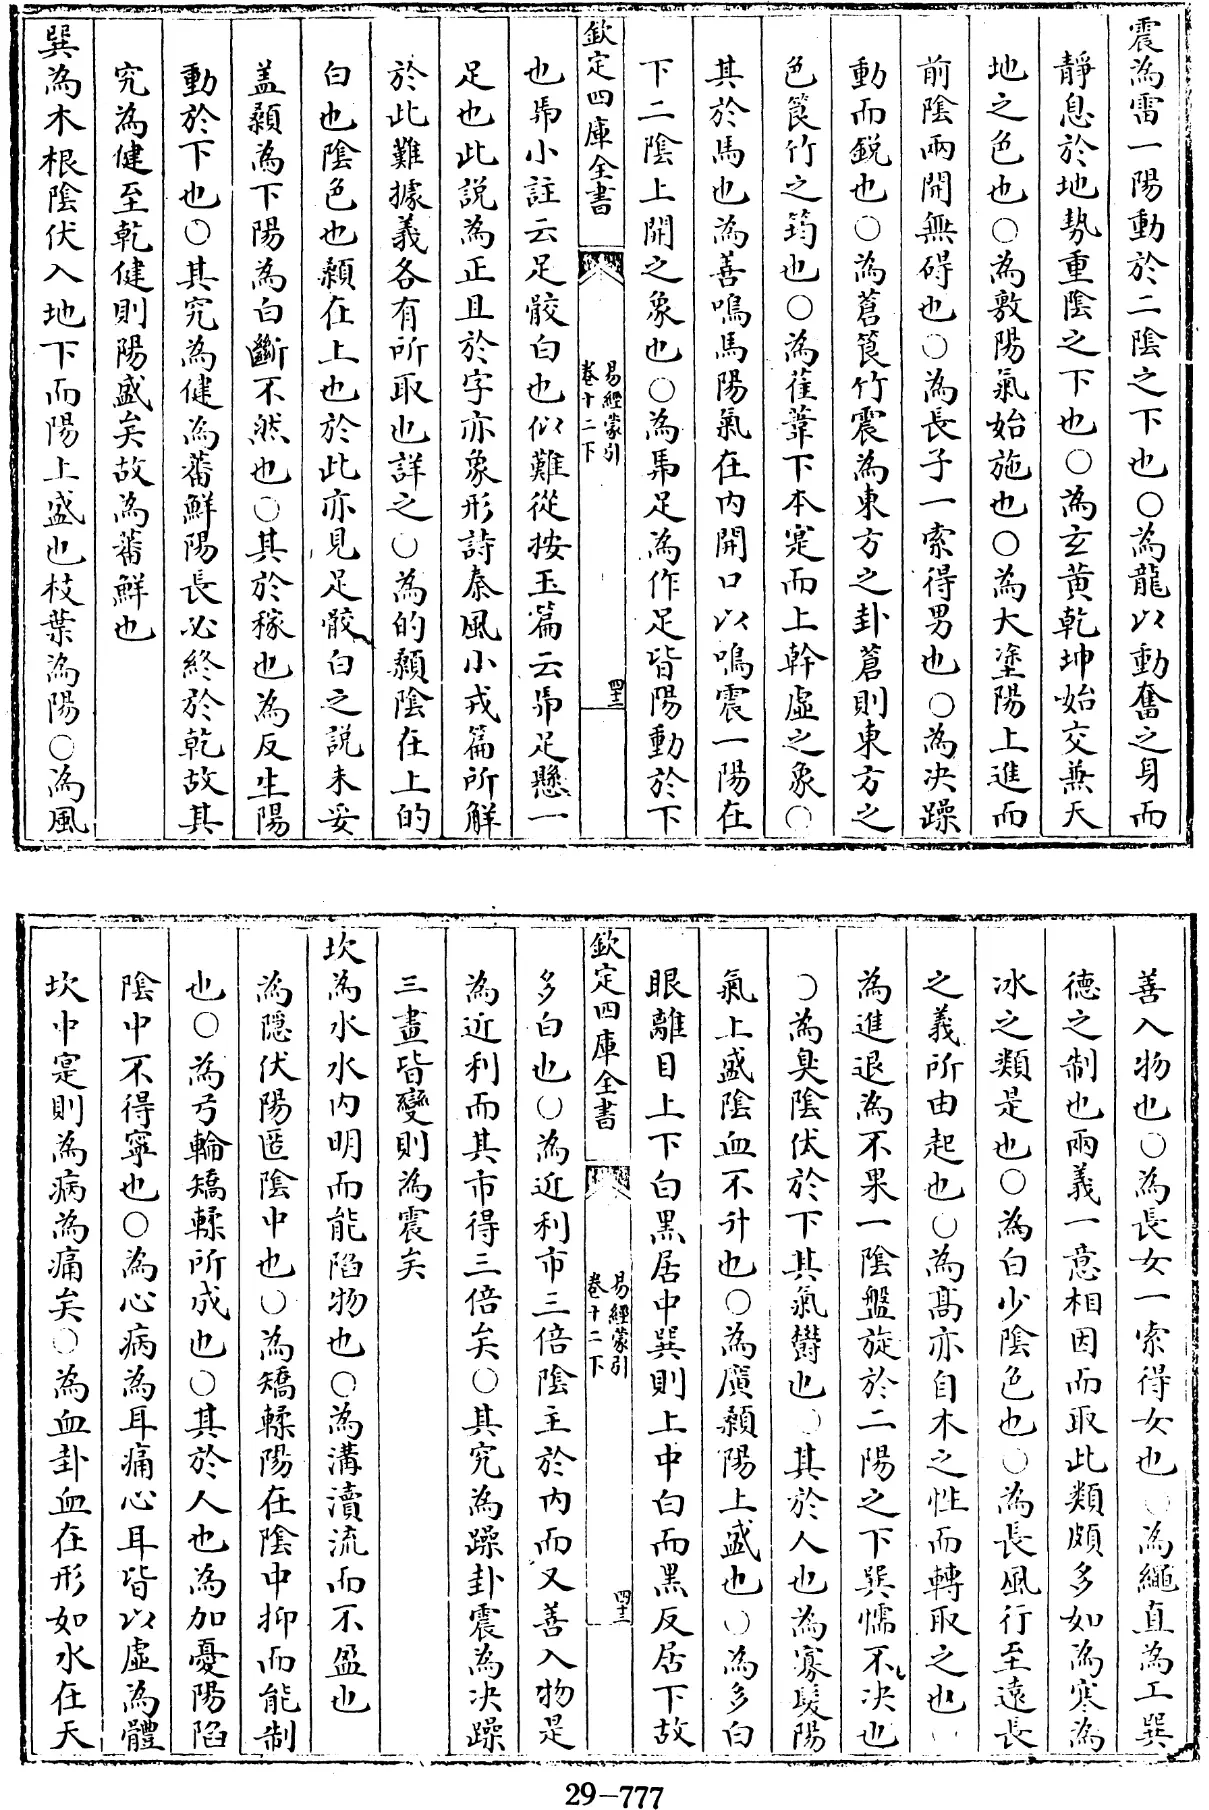 震為雷一陽動於二陰之下也○為龍以動奮之身而
靜息於地勢重陰之下也○為玄黃乾坤始交兼天
地之色也○為敷陽氣始施也○為大塗陽上進而
前陰兩開無碍也○為長子一索得男也○為決躁
動而銳也○為蒼筤竹震為東方之卦蒼則東方之
色筤竹之筠也○為萑葦下本寔而上幹虛之象○
其於馬也為善鳴馬陽氣在内開口以鳴震一陽在
下二陰上開之象也○為馵足為作足皆陽動於下
欽定四庫全書
易經蒙引
卷十二下
四十三
也馵小註云足骹白也似難從按玉篇云馵足懸一
足也此說為正且於字亦象形詩秦風小戎篇所解
於此難據義各有所取也詳之○為的顙陰在上的
白也陰色也顙在上也於此亦見足骹白之說未妥
盖顙為下陽為白斷不然也○其於稼也為反生陽
動於下也○其究為健為蕃鮮陽長必終於乾故其
究為健至乾健則陽盛矣故為蕃鮮也
巽為木根陰伏入地下而陽上盛也枝葉為陽○為風
善入物也○為長女一索得女也○為繩直為工巽
德之制也兩義一意相因而取此類頗多如為寒為
冰之類是也○為白少陰色也○為長風行至遠長
之義所由起也○為髙亦自木之性而轉取之也○
為進退為不果一陰盤旋於二陽之下巽懦不決也
○為臭陰伏於下其氣鬱也○其於人也為寡髮陽
氣上盛陰血不升也○為廣顙陽上盛也○為多白
眼離目上下白黑居中巽則上中白而黑反居下故
欽定四庫全書
易經蒙引
卷十二下
四十三
多白也○為近利市三倍陰主於内而又善入物是
為近利而其市得三倍矣○其究為躁卦震為決躁
三畫皆變則為震矣
坎為水水内明而能陷物也○為溝瀆流而不盈也
為隱伏陽匿陰中也○為矯輮陽在陰中抑而能制
也○為弓輪矯輮所成也○其於人也為加憂陽陷
陰中不得寧也○為心病為耳痛心耳皆以虛為體
坎中寔則為病為痛矣○為血卦血在形如水在天
29-777